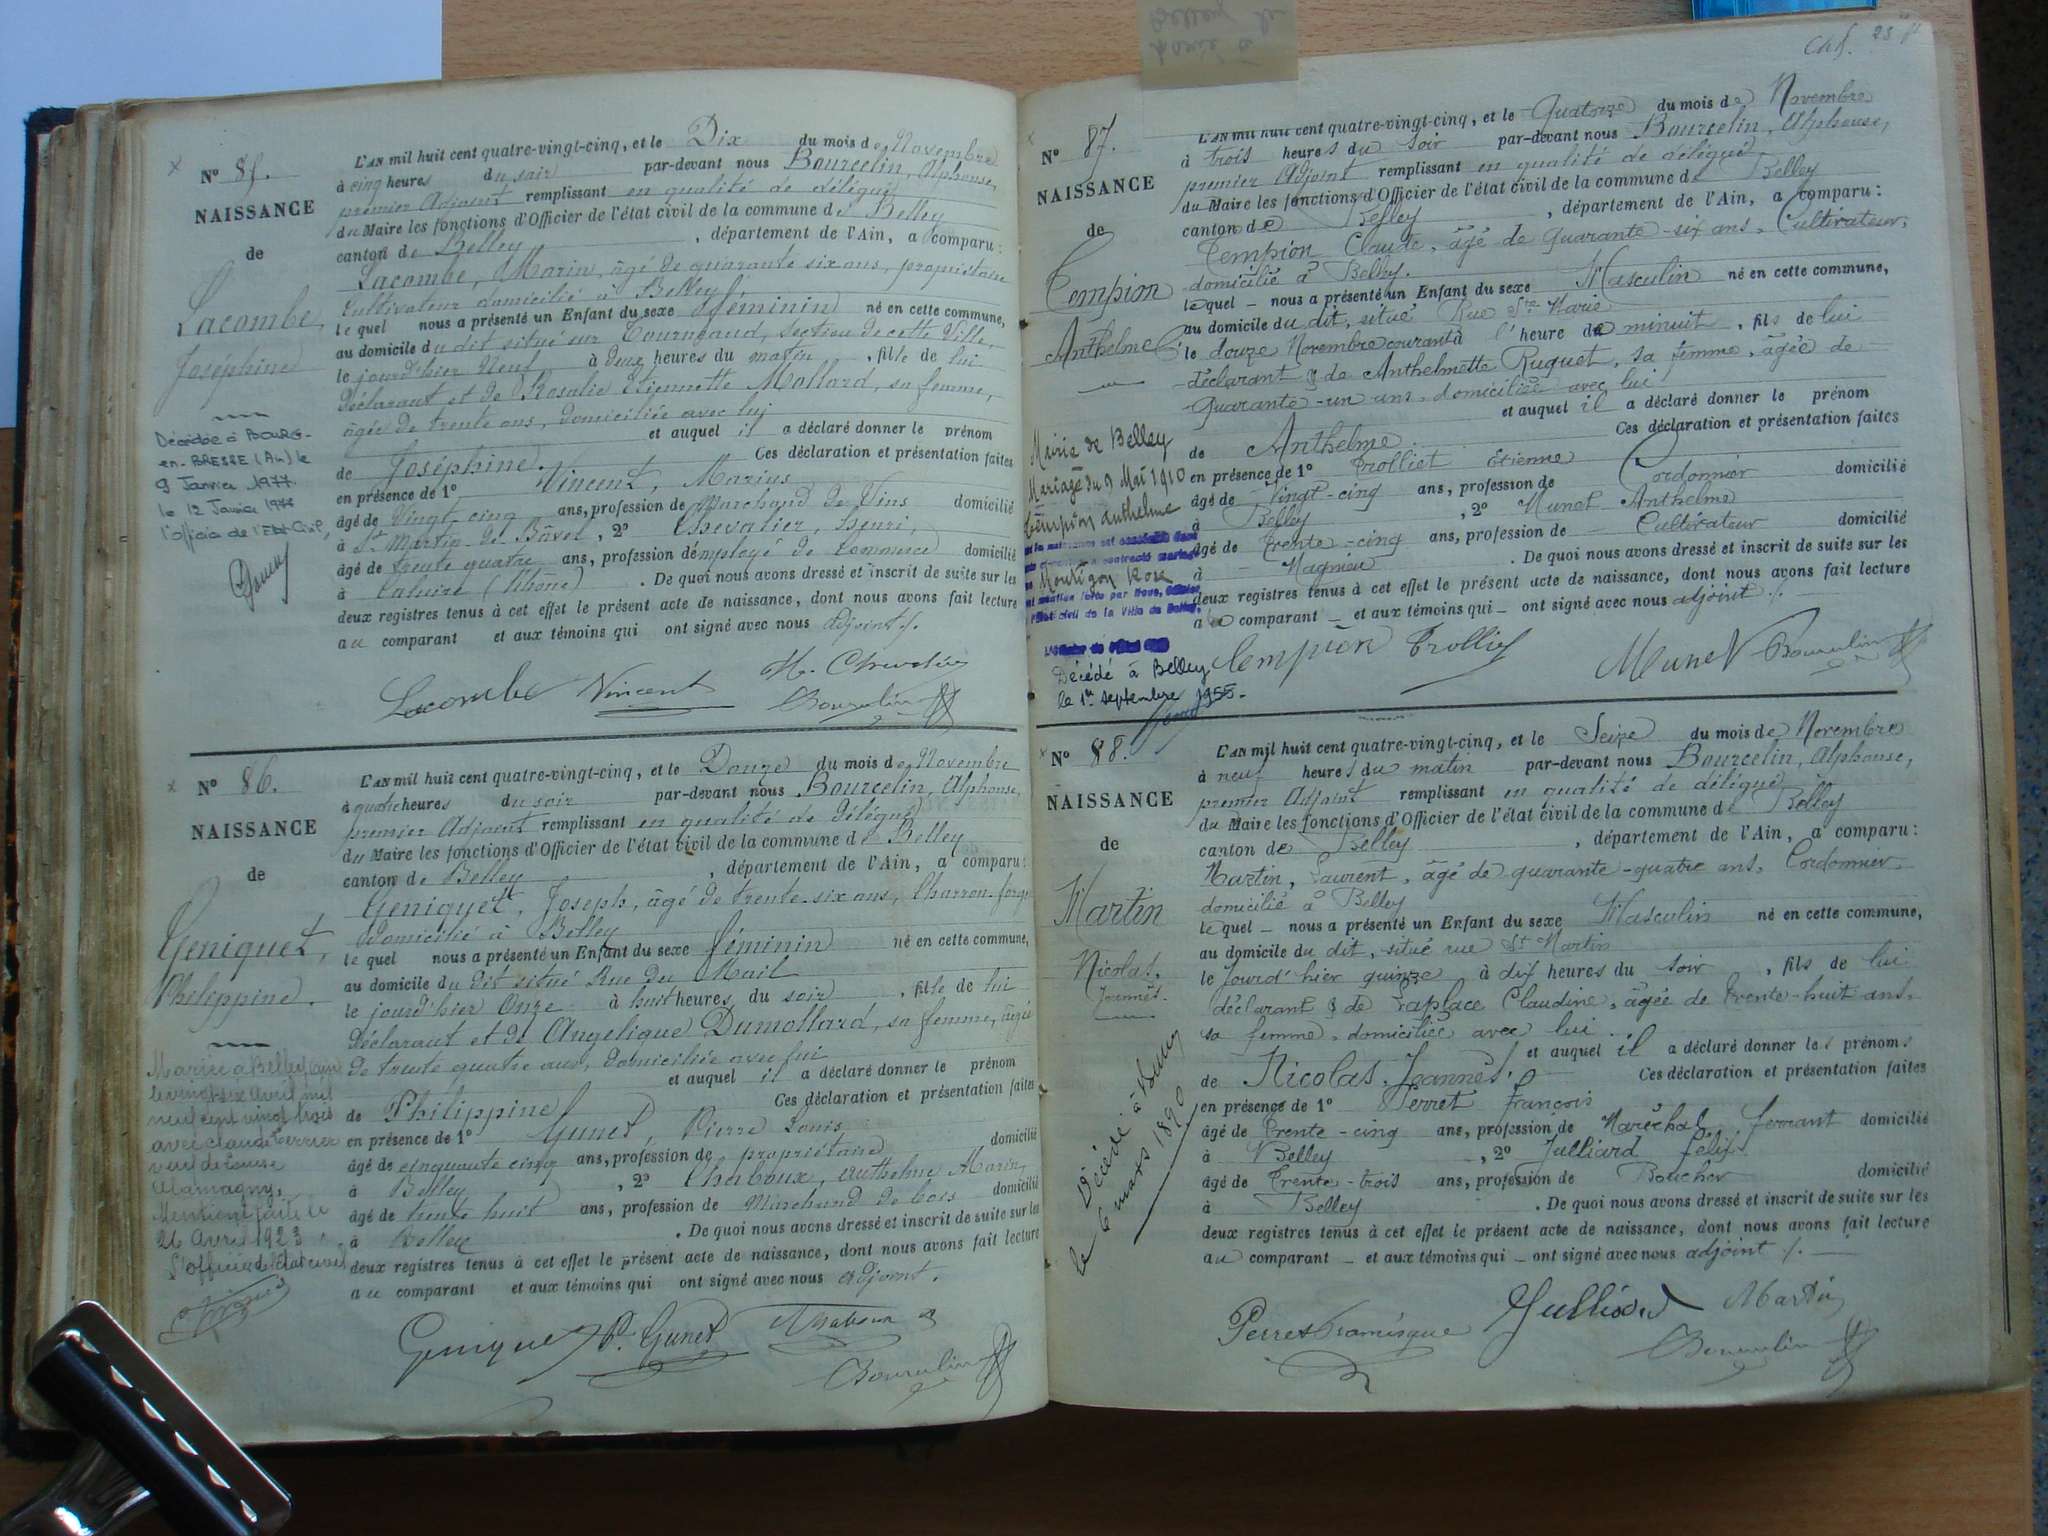 N° 85.
NAISSANCE
de
Lacombe,
Joséphine
Décédée à BOURG-
en-BRESSE (Ain) le
9 Janvier 1977.
le 12 Janvier 1977
l'officier de l'Etat Civil,
L'AN mil huit cent quatre-vingt-cinq, et le Dix du mois de Novembre
à cinq heures du soir par-devant nous Bourcelin, Alphonse,
premier Adjoint remplissant en qualité de délégué
du Maire les fonctions d'Officier de l'état civil de la commune de Belley
canton de Belley, département de l'Ain, a comparu :
Lacombe, Marin, âgé de quarante six ans, propriétaire
Cultivateur domicilié à Belley,
lequel nous a présenté un Enfant du sexe féminin né en cette commune,
au domicile du dit situé sur section de cette Ville,
le jourd'hier Neuf à deux heures du matin, fille de lui
Déclarant et de Rosalie Etiennette Mollard, sa femme,
âgée de trente ans, domiciliée avec lui
et auquel il a déclaré donner le prénom
de Joséphine. Ces déclaration et présentation faites
en présence de 1° Vincent, Marius
âgé de Vingt cinq ans, profession de Marchand de Vins domicilié
à St Martin de Bavel, 2° Chevalier, Henri,
âgé de trente quatre ans, profession d'employé de Commerce domicilié
à Caluire (Rhône). De quoi nous avons dressé et inscrit de suite sur les
deux registres tenus à cet effet le présent acte de naissance, dont nous avons fait lecture
au comparant et aux témoins qui ont signé avec nous adjoint ./.
Lacombe Vincent H. Chevalier
Bourcelin
N° 86.
NAISSANCE
de
Geniquet,
Philippine.
Mariée à Belley (Ain)
le vingt-six avril mil
neuf cent vingt trois
avec Claude Perrier
veuf de Louise
Alamagny.
Mention faite le
26 Avril 1923
L'officier de l'état civil
L'AN mil huit cent quatre-vingt-cinq, et le Douze du mois de Novembre
à quatre heures du soir par-devant nous Bourcelin, Alphonse,
premier Adjoint remplissant en qualité de délégué
du Maire les fonctions d'Officier de l'état civil de la commune de Belley
canton de Belley, département de l'Ain, a comparu :
Geniquet, Joseph, âgé de trente-six ans, Charron-forgn
Domicilié à Belley
lequel nous a présenté un Enfant du sexe féminin né en cette commune,
au domicile du dit situé Rue du Mail
le jourd'hier Onze à huit heures du soir, fille de lui
Déclarant et de Angelique Dumollard, sa femme, âgée
de trente quatre ans, domiciliée avec lui
et auquel il a déclaré donner le prénom
de Philippine Ces déclaration et présentation faites
en présence de 1° Gunet, Pierre Louis
âgé de cinquante cinq ans, profession de propriétaire domicilié
à Belley, 2° Chaboux, Anthelme Marin,
âgé de trente huit ans, profession de Marchand de bois domicilié
à Belley. De quoi nous avons dressé et inscrit de suite sur les
deux registres tenus à cet effet le présent acte de naissance, dont nous avons fait lecture
au comparant et aux témoins qui ont signé avec nous adjoint.
Geniquet P. Gunet Chaboux
Bourcelin
N° 87.
NAISSANCE
de
Tempion
Anthelme
Mairie de Belley
Mariage du 9 Mai 1910
Tempion Anthelme
Montigon Rose
Décédé à Belley
le 1er septembre 1955.
L'AN mil huit cent quatre-vingt-cinq, et le Quatorze du mois de Novembre
à trois heures du soir par-devant nous Bourcelin, Alphonse,
premier Adjoint remplissant en qualité de délégué
du Maire les fonctions d'Officier de l'état civil de la commune de Belley
canton de Belley, département de l'Ain, a comparu :
Tempion Claude, âgé de quarante-six ans, Cultivateur,
domicilié à Belley.
lequel nous a présenté un Enfant du sexe Masculin né en cette commune,
au domicile du dit, situé Rue Ste Marie
le douze Novembre courant à l'heure de minuit, fils de lui
déclarant & de Anthelmette Ruguet, sa femme, âgée de
quarante-un ans, domiciliée avec lui
et auquel il a déclaré donner le prénom
de Anthelme Ces déclaration et présentation faites
en présence de 1° Trolliet Etienne
âgé de Vingt-cinq ans, profession de Cordonnier domicilié
à Belley, 2° Munet Anthelme
âgé de Trente-cinq ans, profession de Cultivateur domicilié
à Magnieu. De quoi nous avons dressé et inscrit de suite sur les
deux registres tenus à cet effet le présent acte de naissance, dont nous avons fait lecture
au comparant et aux témoins qui ont signé avec nous adjoint ./.
Tempion Trolliet Munet Bourcelin
N° 88.
NAISSANCE
de
Martin
Nicolas,
Joannès.
Décédé à Belley
le 6 mars 1890
L'AN mil huit cent quatre-vingt-cinq, et le Seize du mois de Novembre
à neuf heures du matin par-devant nous Bourcelin, Alphonse,
premier Adjoint remplissant en qualité de délégué
du Maire les fonctions d'Officier de l'état civil de la commune de Belley
canton de Belley, département de l'Ain, a comparu :
Martin, Laurent, âgé de quarante-quatre ans, Cordonnier
domicilié à Belley
lequel nous a présenté un Enfant du sexe Masculin né en cette commune,
au domicile du dit, situé rue St Martin
le jourd'hier quinze à dix heures du soir, fils de lui
déclarant & de Laplace Claudine, âgée de trente-huit ans,
sa femme, domiciliée avec lui
et auquel il a déclaré donner les prénoms
de Nicolas, Joannès. Ces déclaration et présentation faites
en présence de 1° Perret François
âgé de Trente-cinq ans, profession de Maréchal ferrant domicilié
à Belley, 2° Julliard Félix
âgé de Trente-trois ans, profession de Boucher domicilié
à Belley. De quoi nous avons dressé et inscrit de suite sur les
deux registres tenus à cet effet le présent acte de naissance, dont nous avons fait lecture
au comparant et aux témoins qui ont signé avec nous adjoint ./.
Perret Julliard Martin
Bourcelin